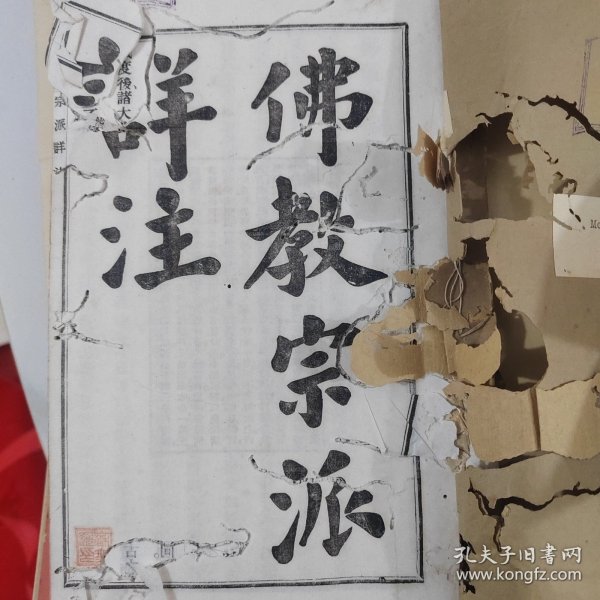 佛教宗派
詳注
度後諸大
宗派詳注
Mo
孔夫子旧书网
www.kongfz.com